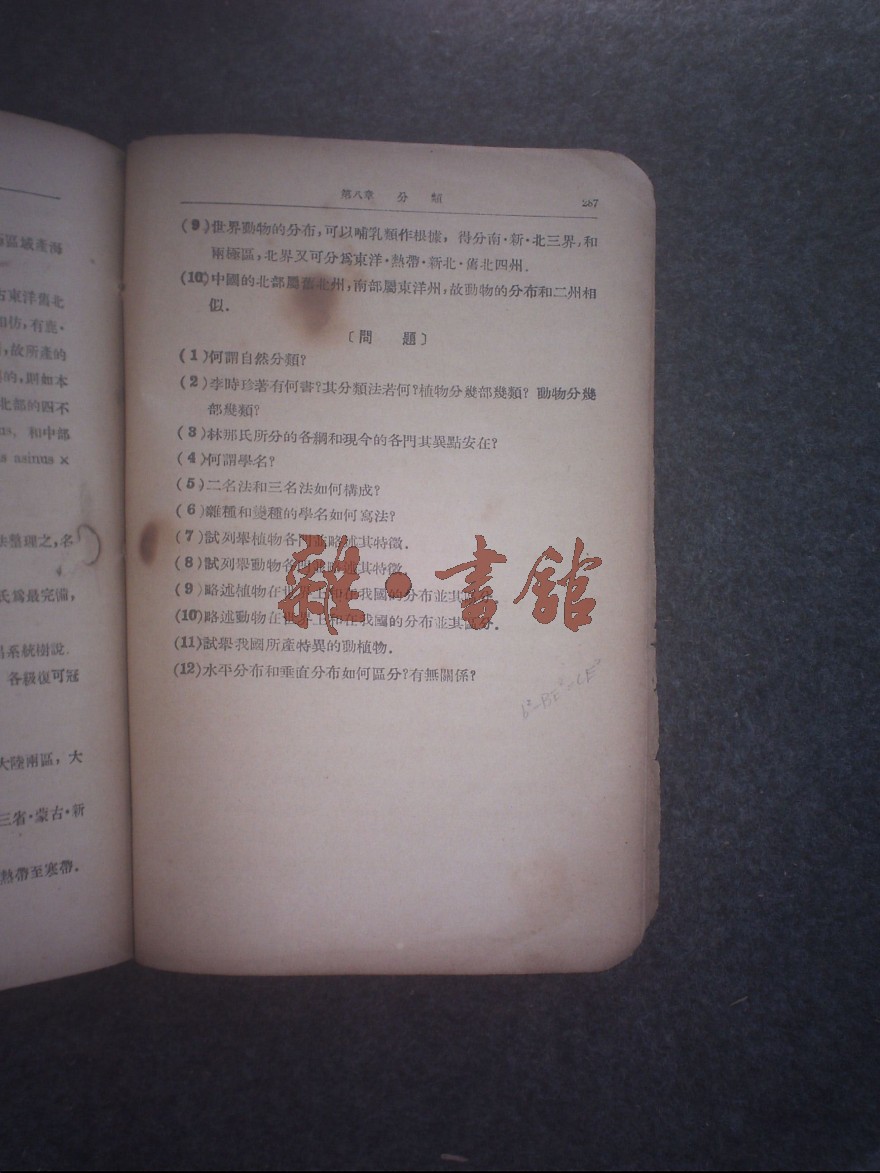 區域產海
古東洋舊北
和彷，有鹿・
，故所產的
的，則如本
北部的四不
ns，和中部
s asinus ×
法整理之，名
氏爲最完備，
系統樹說．
各級復可冠
大陸兩區，大
三省・蒙古・新
熱帶至寒帶．
第八章 分類 287
(9)世界動物的分布，可以哺乳類作根據，得分南・新・北三界，和
兩極區，北界又可分爲東洋・熱帶・新北・舊北四州．
(10)中國的北部屬舊北州，南部屬東洋州，故動物的分布和二州相
似．
〔問 題〕
(1)何謂自然分類？
(2)李時珍著有何書？其分類法若何？植物分幾部幾類？動物分幾
部幾類？
(3)林那氏所分的各綱和現今的各門其異點安在？
(4)何謂學名？
(5)二名法和三名法如何構成？
(6)雜種和變種的學名如何寫法？
(7)試列舉植物各門並略述其特徵．
(8)試列舉動物各門並略述其特徵．
(9)略述植物在世界上和在我國的分布並其區分．
(10)略述動物在世界上和在我國的分布並其區分．
(11)試舉我國所產特異的動植物．
(12)水平分布和垂直分布如何區分？有無關係？
雜・書館